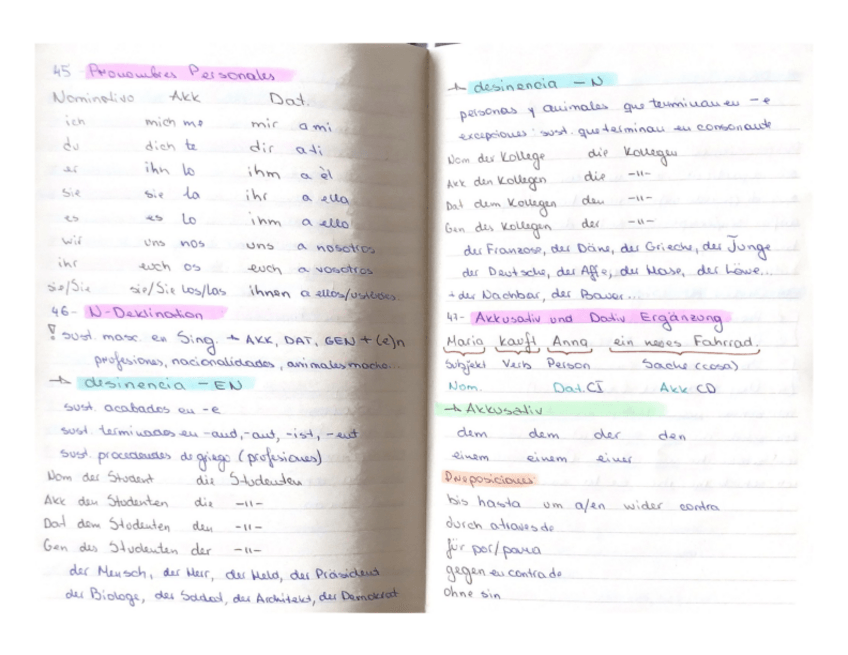 45 Pronombres Personales
Nominativo Akk Dat.
ich mich me mir a mi
du dich te dir a ti
er ihn lo ihm a él
sie sie la ihr a ella
es es lo ihm a ello
wir uns nos uns a nosotros
ihr euch os euch a vosotros
sie/Sie sie/Sie los/las ihnen a ellos/ustedes
46- N-Deklination
! sust. masc. en Sing. + AKK, DAT, GEN + (e)n
profesiones, nacionalidades, animales macho...
→ desinencia -EN
sust. acabados en -e
sust. terminados en -and, -ant, -ist, -ent
sust. procedendes de griego (profesiones)
Nom der Student die Studenten
Akk den Studenten die -11-
Dat dem Studenten den -11-
Gen des Studenten der -11-
der Mensch, der Herr, der Held, der Präsident
der Biologe, der Soldat, der Architekt, der Demokrat
→ desinencia -N
personas y animales que terminan en -e
excepciones: sust. que terminan en consonante
Nom der Kollege die Kollegen
Akk den Kollegen die -11-
Dat dem Kollegen den -11-
Gen des Kollegen der -11-
der Franzose, der Däne, der Grieche, der Junge
der Deutsche, der Affe, der Hase, der Löwe...
+ der Nachbar, der Bauer...
47- Akkusativ und Dativ Ergänzung
Maria kauft Anna ein neues Fahrrad.
Subjekt Verb Person Sache (cosa)
Nom. Dat. CI Akk CD
→ Akkusativ
dem dem der den
einem einem einer
Preposiciones:
bis hasta um a/en wider contra
durch a traves de
für por/para
gegen en contra de
ohne sin